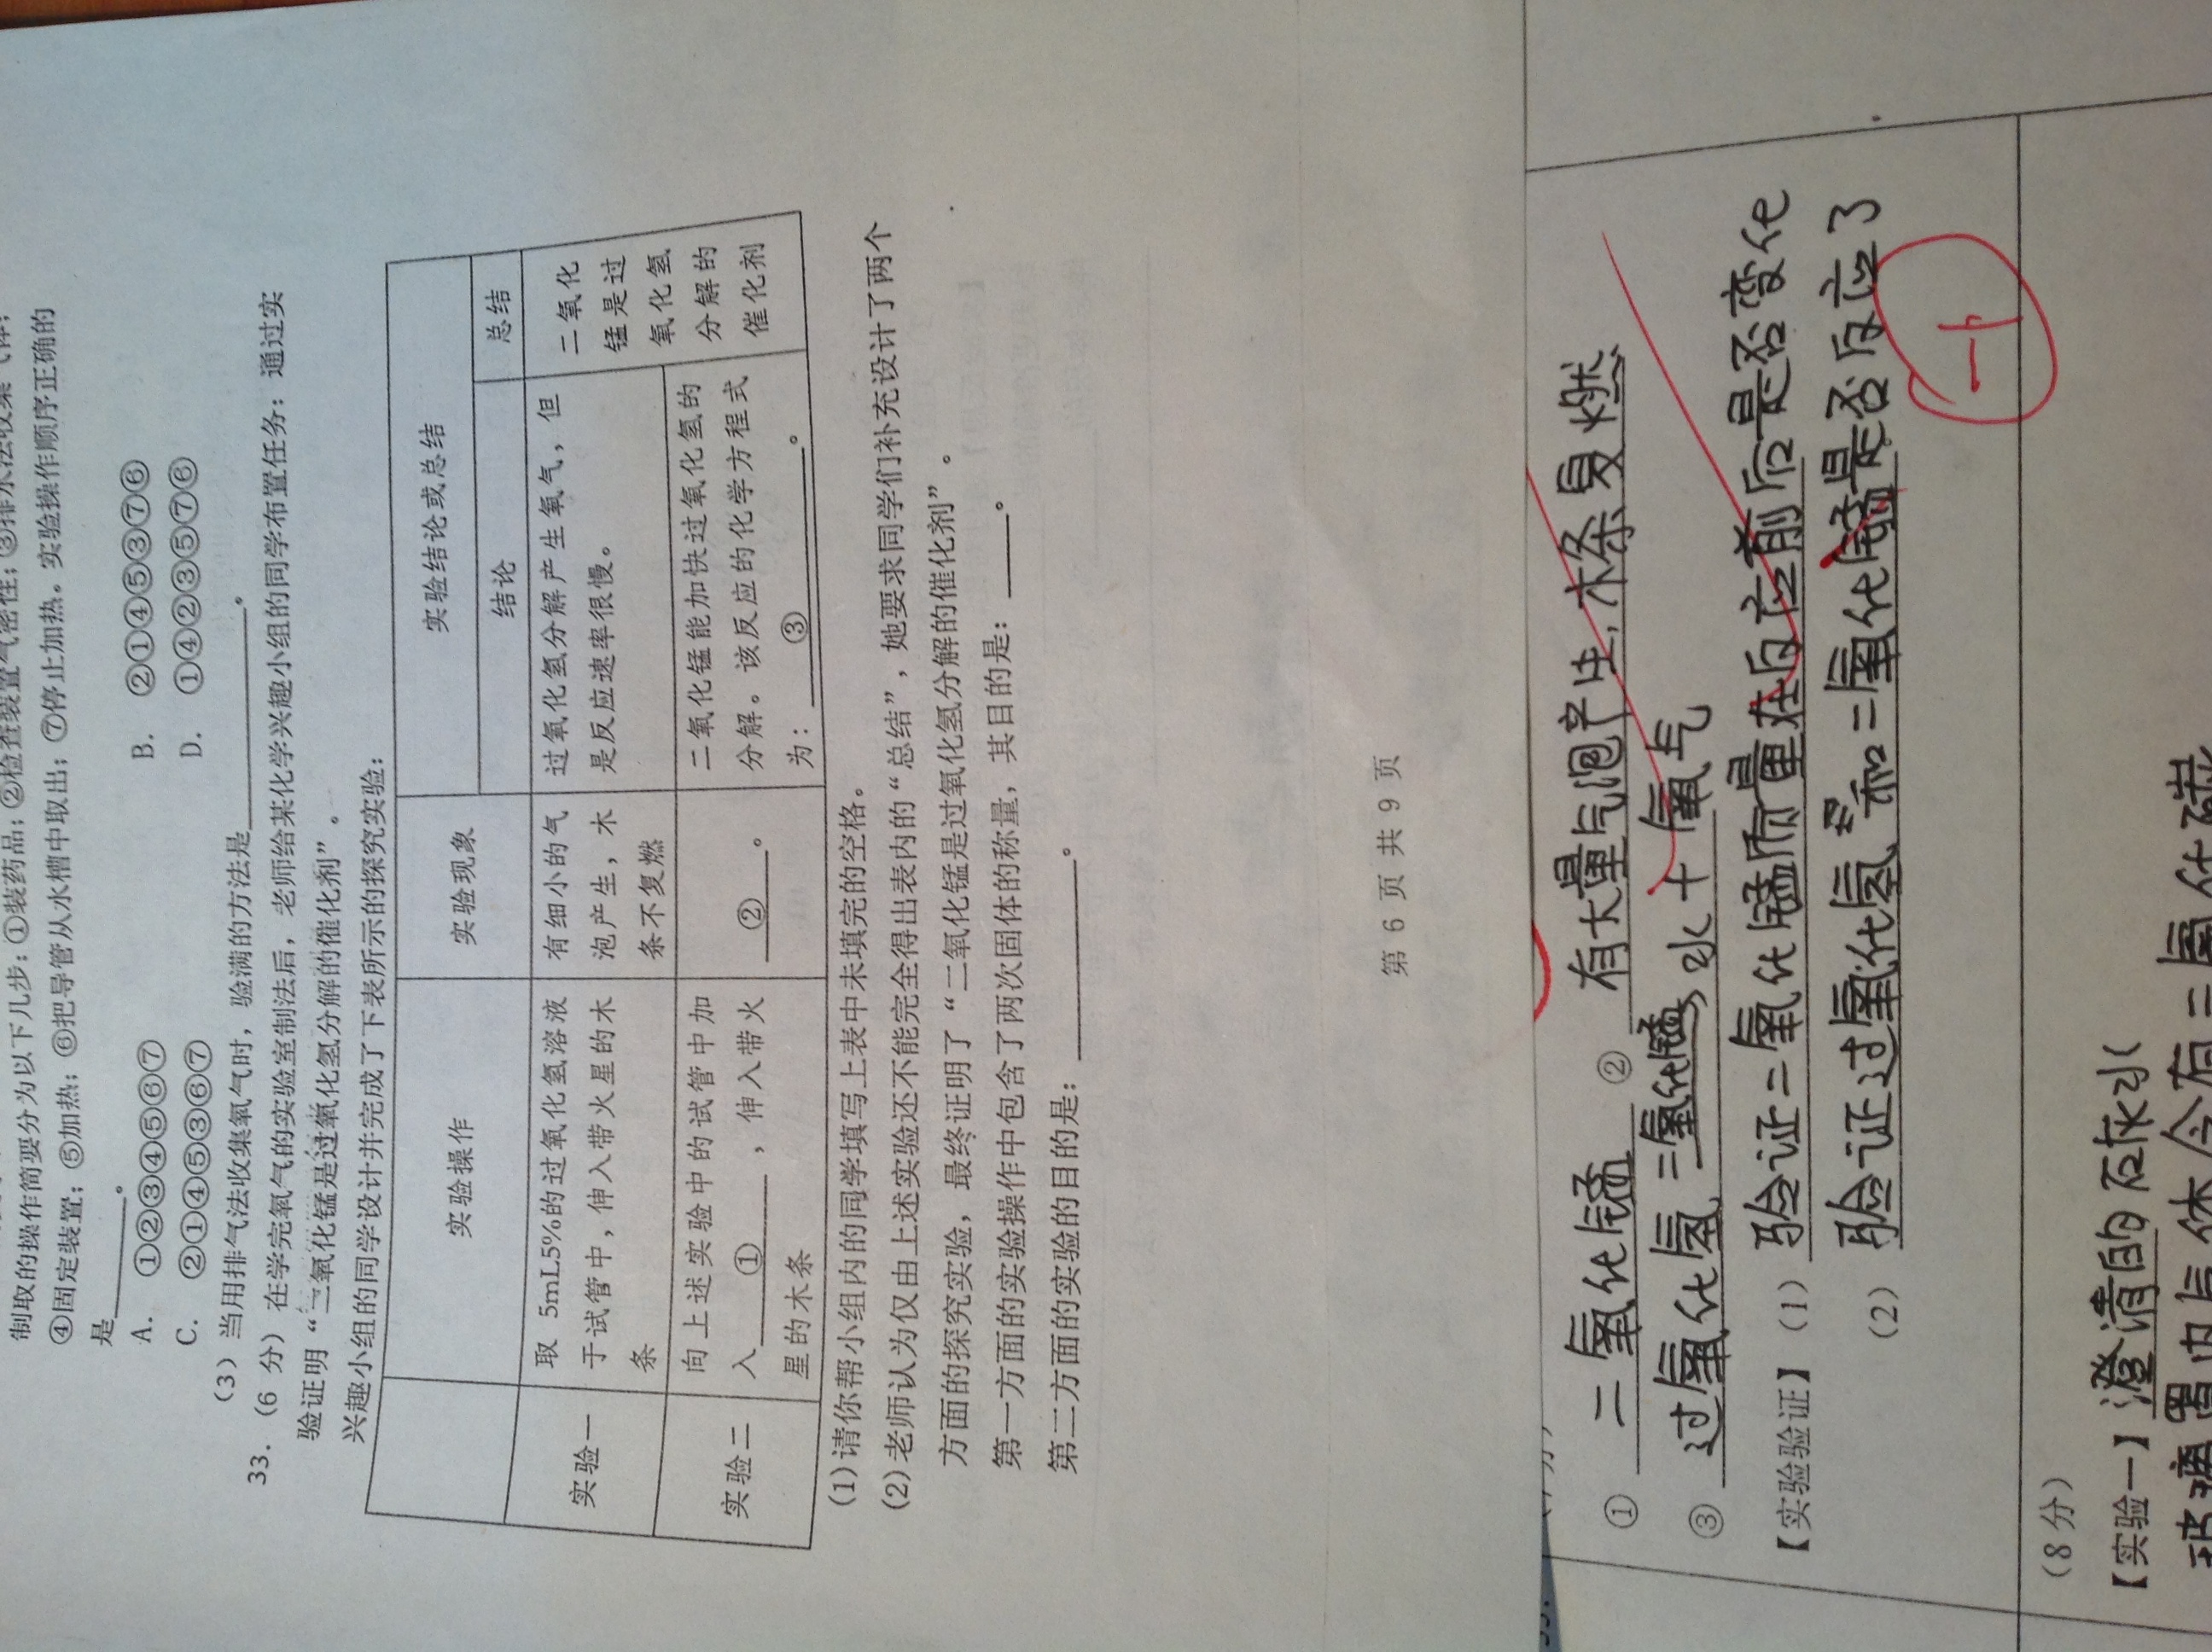 制取的操作简要分为以下几步：①装药品；②检查装置气密性；③排水法收集气体；
④固定装置；⑤加热；⑥把导管从水槽中取出；⑦停止加热。实验操作顺序正确的
是________。
A. ①②③④⑤⑥⑦ B. ②①④⑤③⑦⑥
C. ②①④⑤③⑥⑦ D. ①④②③⑤⑦⑥
（3）当用排气法收集氧气时，验满的方法是______________。
33.（6 分）在学完氧气的实验室制法后，老师给某化学兴趣小组的同学布置任务：通过实
验证明“二氧化锰是过氧化氢分解的催化剂”。
兴趣小组的同学设计并完成了下表所示的探究实验：
实验操作 实验现象 实验结论或总结
结论 总结
实验一
取 5mL5%的过氧化氢溶液
于试管中，伸入带火星的木
条
有细小的气
泡产生，木
条不复燃
过氧化氢分解产生氧气，但
是反应速率很慢。
二氧化
锰是过
氧化氢
分解的
催化剂
实验二
向上述实验中的试管中加
入____①____，伸入带火
星的木条
__②__。
二氧化锰能加快过氧化氢的
分解。该反应的化学方程式
为：____③________。
(1)请你帮小组内的同学填写上表中未填完的空格。
(2)老师认为仅由上述实验还不能完全得出表内的“总结”，她要求同学们补充设计了两个
方面的探究实验，最终证明了“二氧化锰是过氧化氢分解的催化剂”。
第一方面的实验操作中包含了两次固体的称量，其目的是：_____。
第二方面的实验的目的是：____________。
第 6 页 共 9 页
① 二氧化锰 ② 有大量气泡产生,木条复燃
③ 过氧化氢 二氧化锰→ 水+氧气
【实验验证】（1）验证二氧化锰质量在反应前后是否变化
（2）验证过氧化氢和二氧化锰是否反应了
-1
（8 分）
【实验一】澄清的石灰水
玻璃罩内气体含有二氧化碳